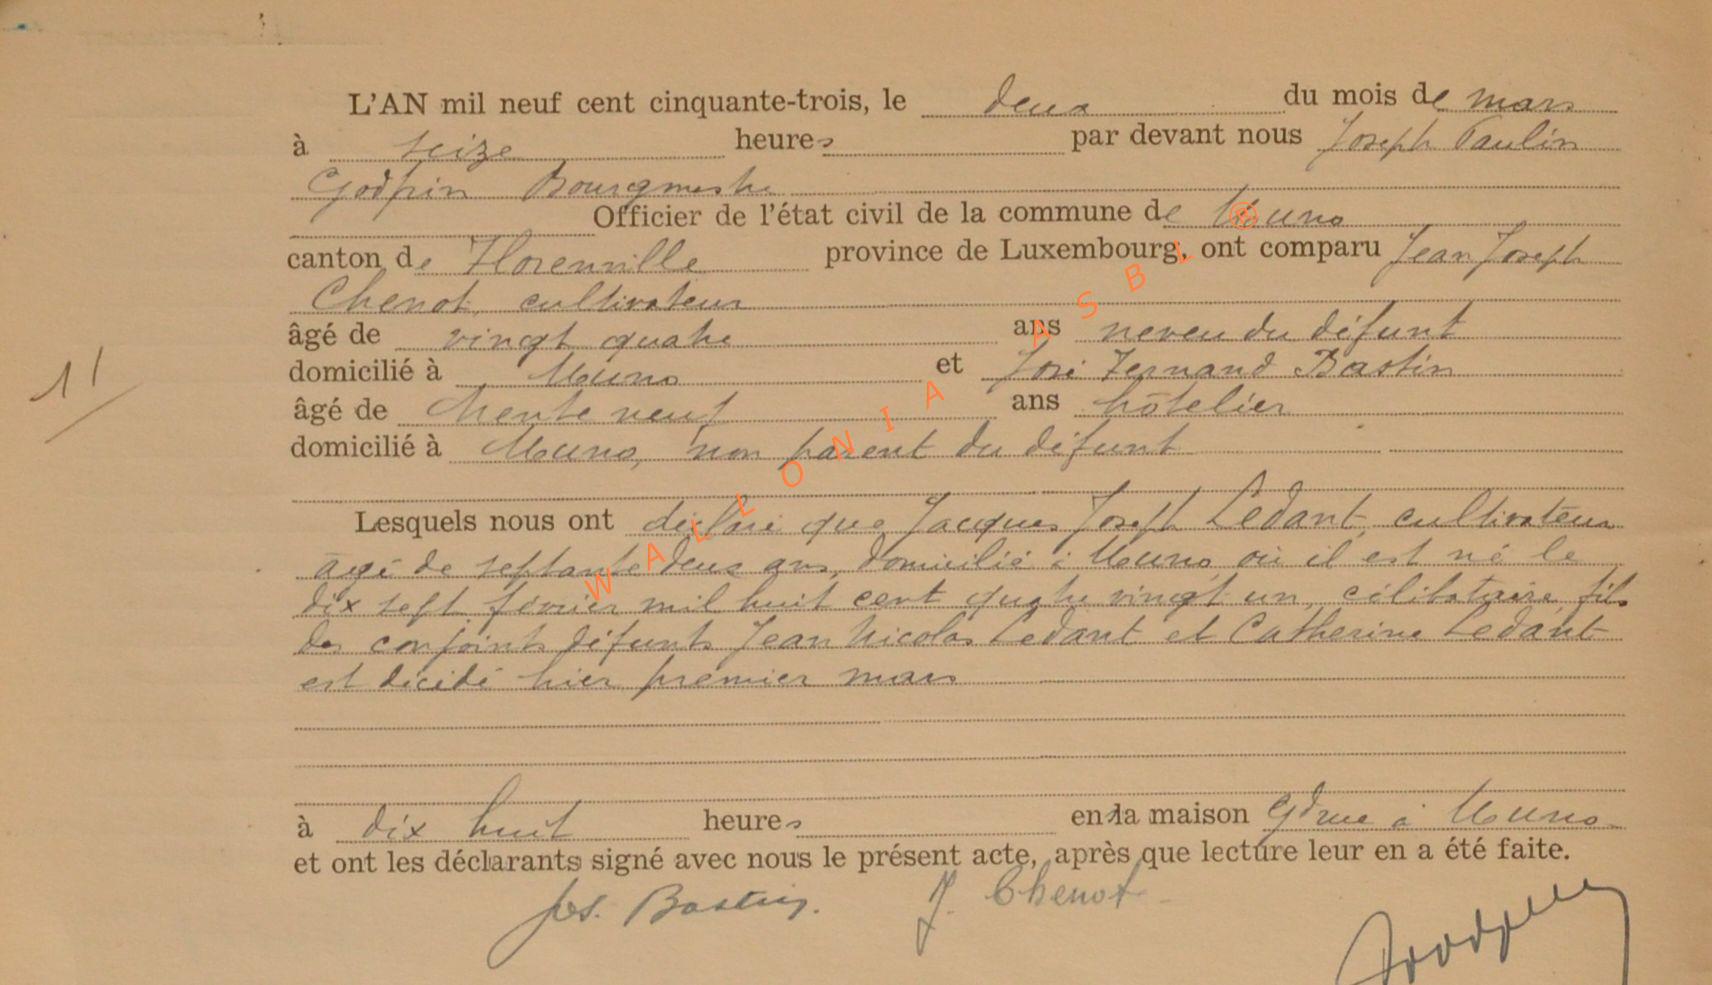 L'AN mil neuf cent cinquante-trois, le deux du mois de mars
à seize heures par devant nous Joseph Paulin
Godfrin Bourgmestre
Officier de l'état civil de la commune de Muno
canton de Florenville province de Luxembourg, ont comparu Jean Joseph
Chenot, cultivateur
âgé de vingt quatre ans neveu du défunt
domicilié à Muno et José Fernand Bastin
11
âgé de trente neuf ans hôtelier
domicilié à Muno, non parent du défunt
Lesquels nous ont déclaré que Jacques Joseph Ledant, cultivateur
âgé de septante deux ans, domicilié à Muno où il est né le
dix sept février mil huit cent quatre vingt un, célibataire, fils
des conjoints défunts Jean Nicolas Ledant et Catherine Ledant
est décédé hier premier mars
à dix huit heures en sa maison Gdrue à Muno
et ont les déclarants signé avec nous le présent acte, après que lecture leur en a été faite.
Jos. Bastin. J. Chenot
WALLONIA ASBL ®